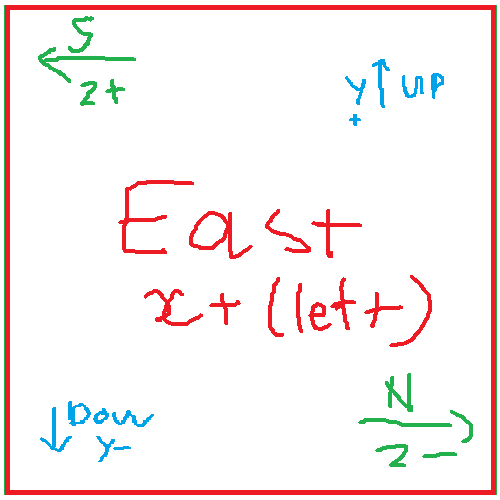 S
z+
y ↑ UP
+
East
x+ (left)
↓ Down
y-
N
z-